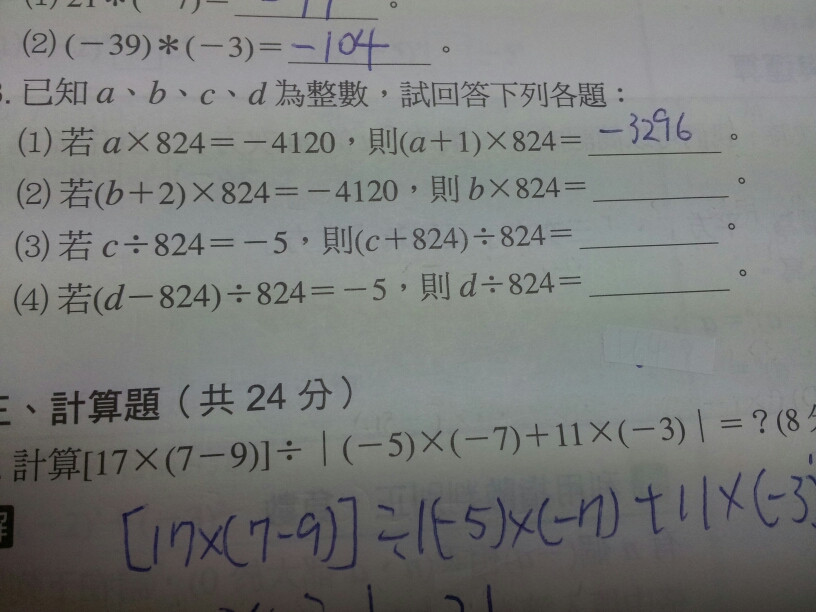 (2) (－39)＊(－3)＝ －104 。
3. 已知 a、b、c、d 為整數，試回答下列各題：
(1) 若 a×824＝－4120，則(a＋1)×824＝ －3296 。
(2) 若(b＋2)×824＝－4120，則 b×824＝ 。
(3) 若 c÷824＝－5，則(c＋824)÷824＝ 。
(4) 若(d－824)÷824＝－5，則 d÷824＝ 。
三、計算題（共 24 分）
計算[17×(7－9)]÷｜(－5)×(－7)＋11×(－3)｜＝？(8分
解
[17×(7-9)]÷|(-5)×(-7)+11×(-3)